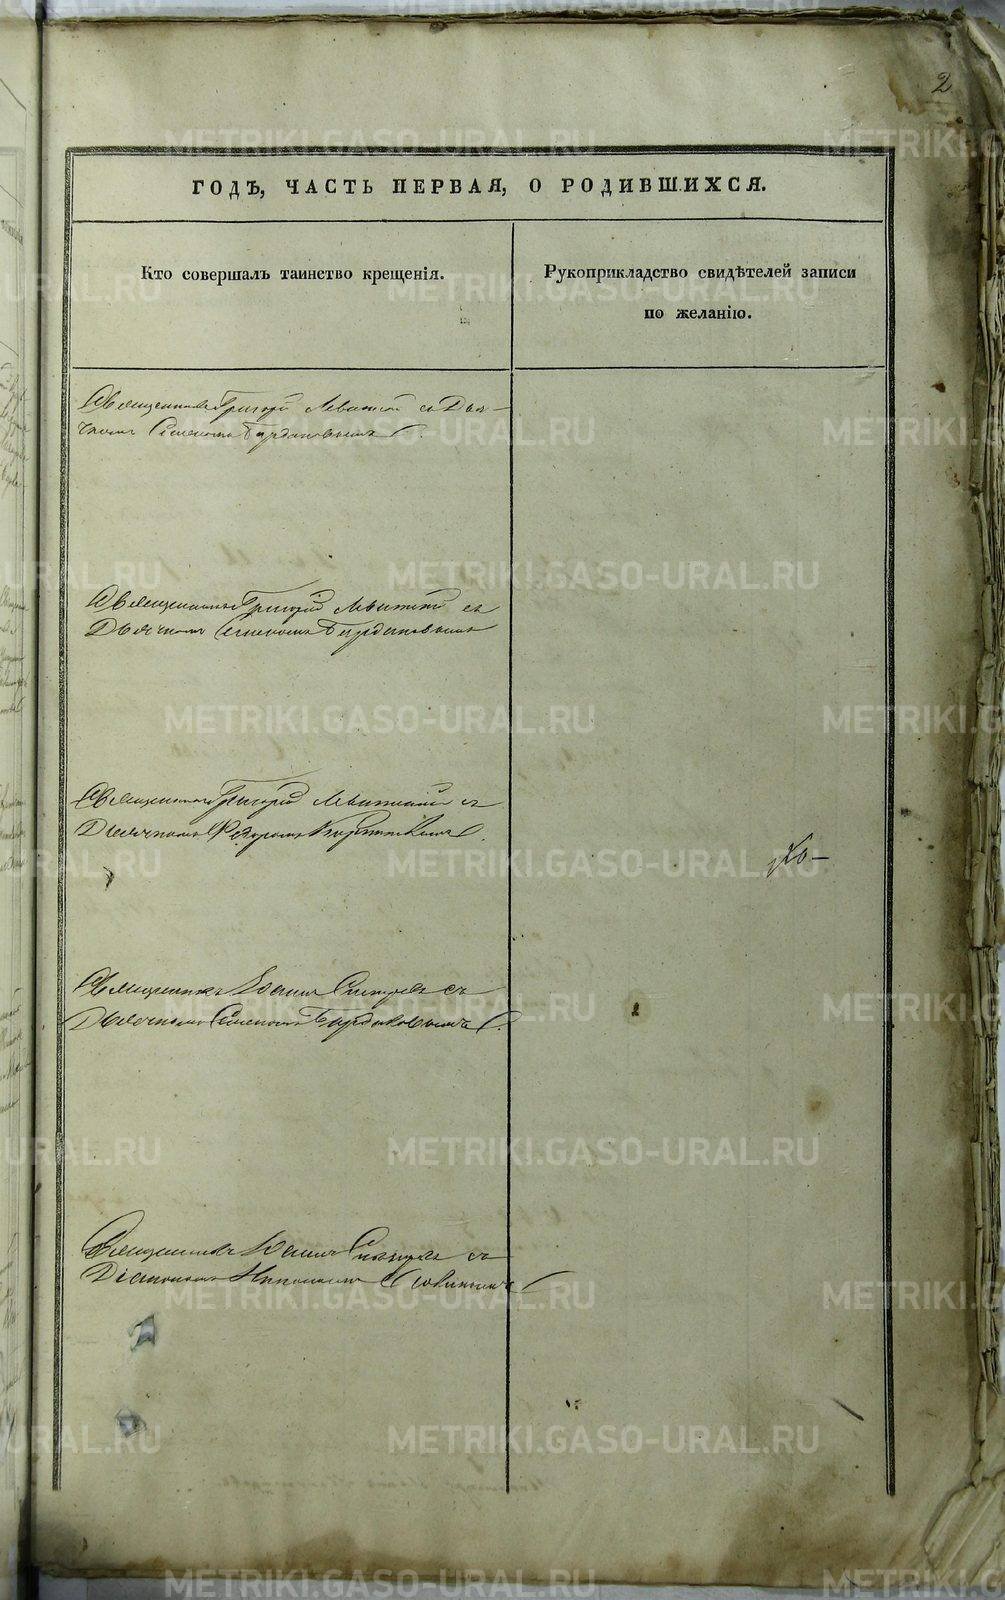 2
ГОДѢ, ЧАСТЬ ПЕРВАЯ, О РОДИВШИХСЯ.
Кто совершалъ таинство крещенія.
Рукоприкладство свидѣтелей записи
по желанію.
Священникъ Григорій Левитскій съ Дья-
чкомъ Семеномъ Бурдаковымъ
Священникъ Григорій Левитскій съ
Дьячкомъ Семеномъ Бурдаковымъ
Священникъ Григорій Левитскій съ
Дьячкомъ Федоромъ
Священникъ Іоаннъ съ
Дьячкомъ Семеномъ Бурдаковымъ
Священникъ Іоаннъ съ
Діакономъ
METRIKI.GASO-URAL.RU